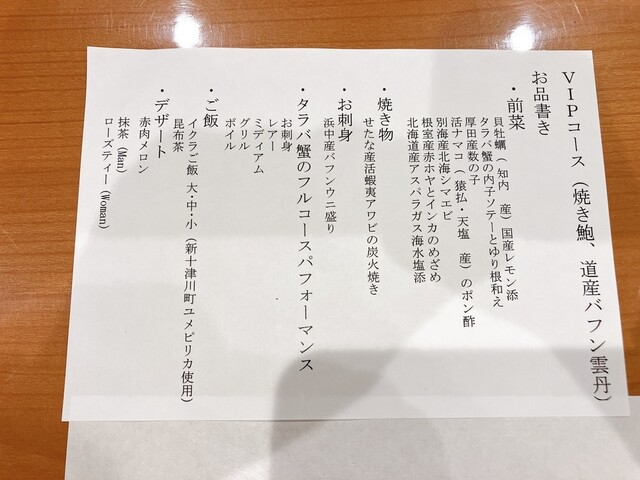 VIPコース(焼き鮑、道産バフン雲丹)
お品書き
・前菜
貝牡蠣(知内 産)国産レモン添
タラバ蟹の内子ソテーとゆり根和え
厚田産数の子
活ナマコ(猿払・天塩 産)のポン酢
別海産北海シマエビ
根室産赤ホヤとインカのめざめ
北海道産アスパラガス海水塩添
・焼き物
せたな産活蝦夷アワビの炭火焼き
・お刺身
浜中産バフンウニ盛り
・タラバ蟹のフルコースパフォーマンス
お刺身
レアー
ミディアム
グリル
ボイル
・ご飯
イクラご飯 大・中・小(新十津川町ユメピリカ使用)
昆布茶
・デザート
赤肉メロン
抹茶(Man)
ローズティー(Woman)